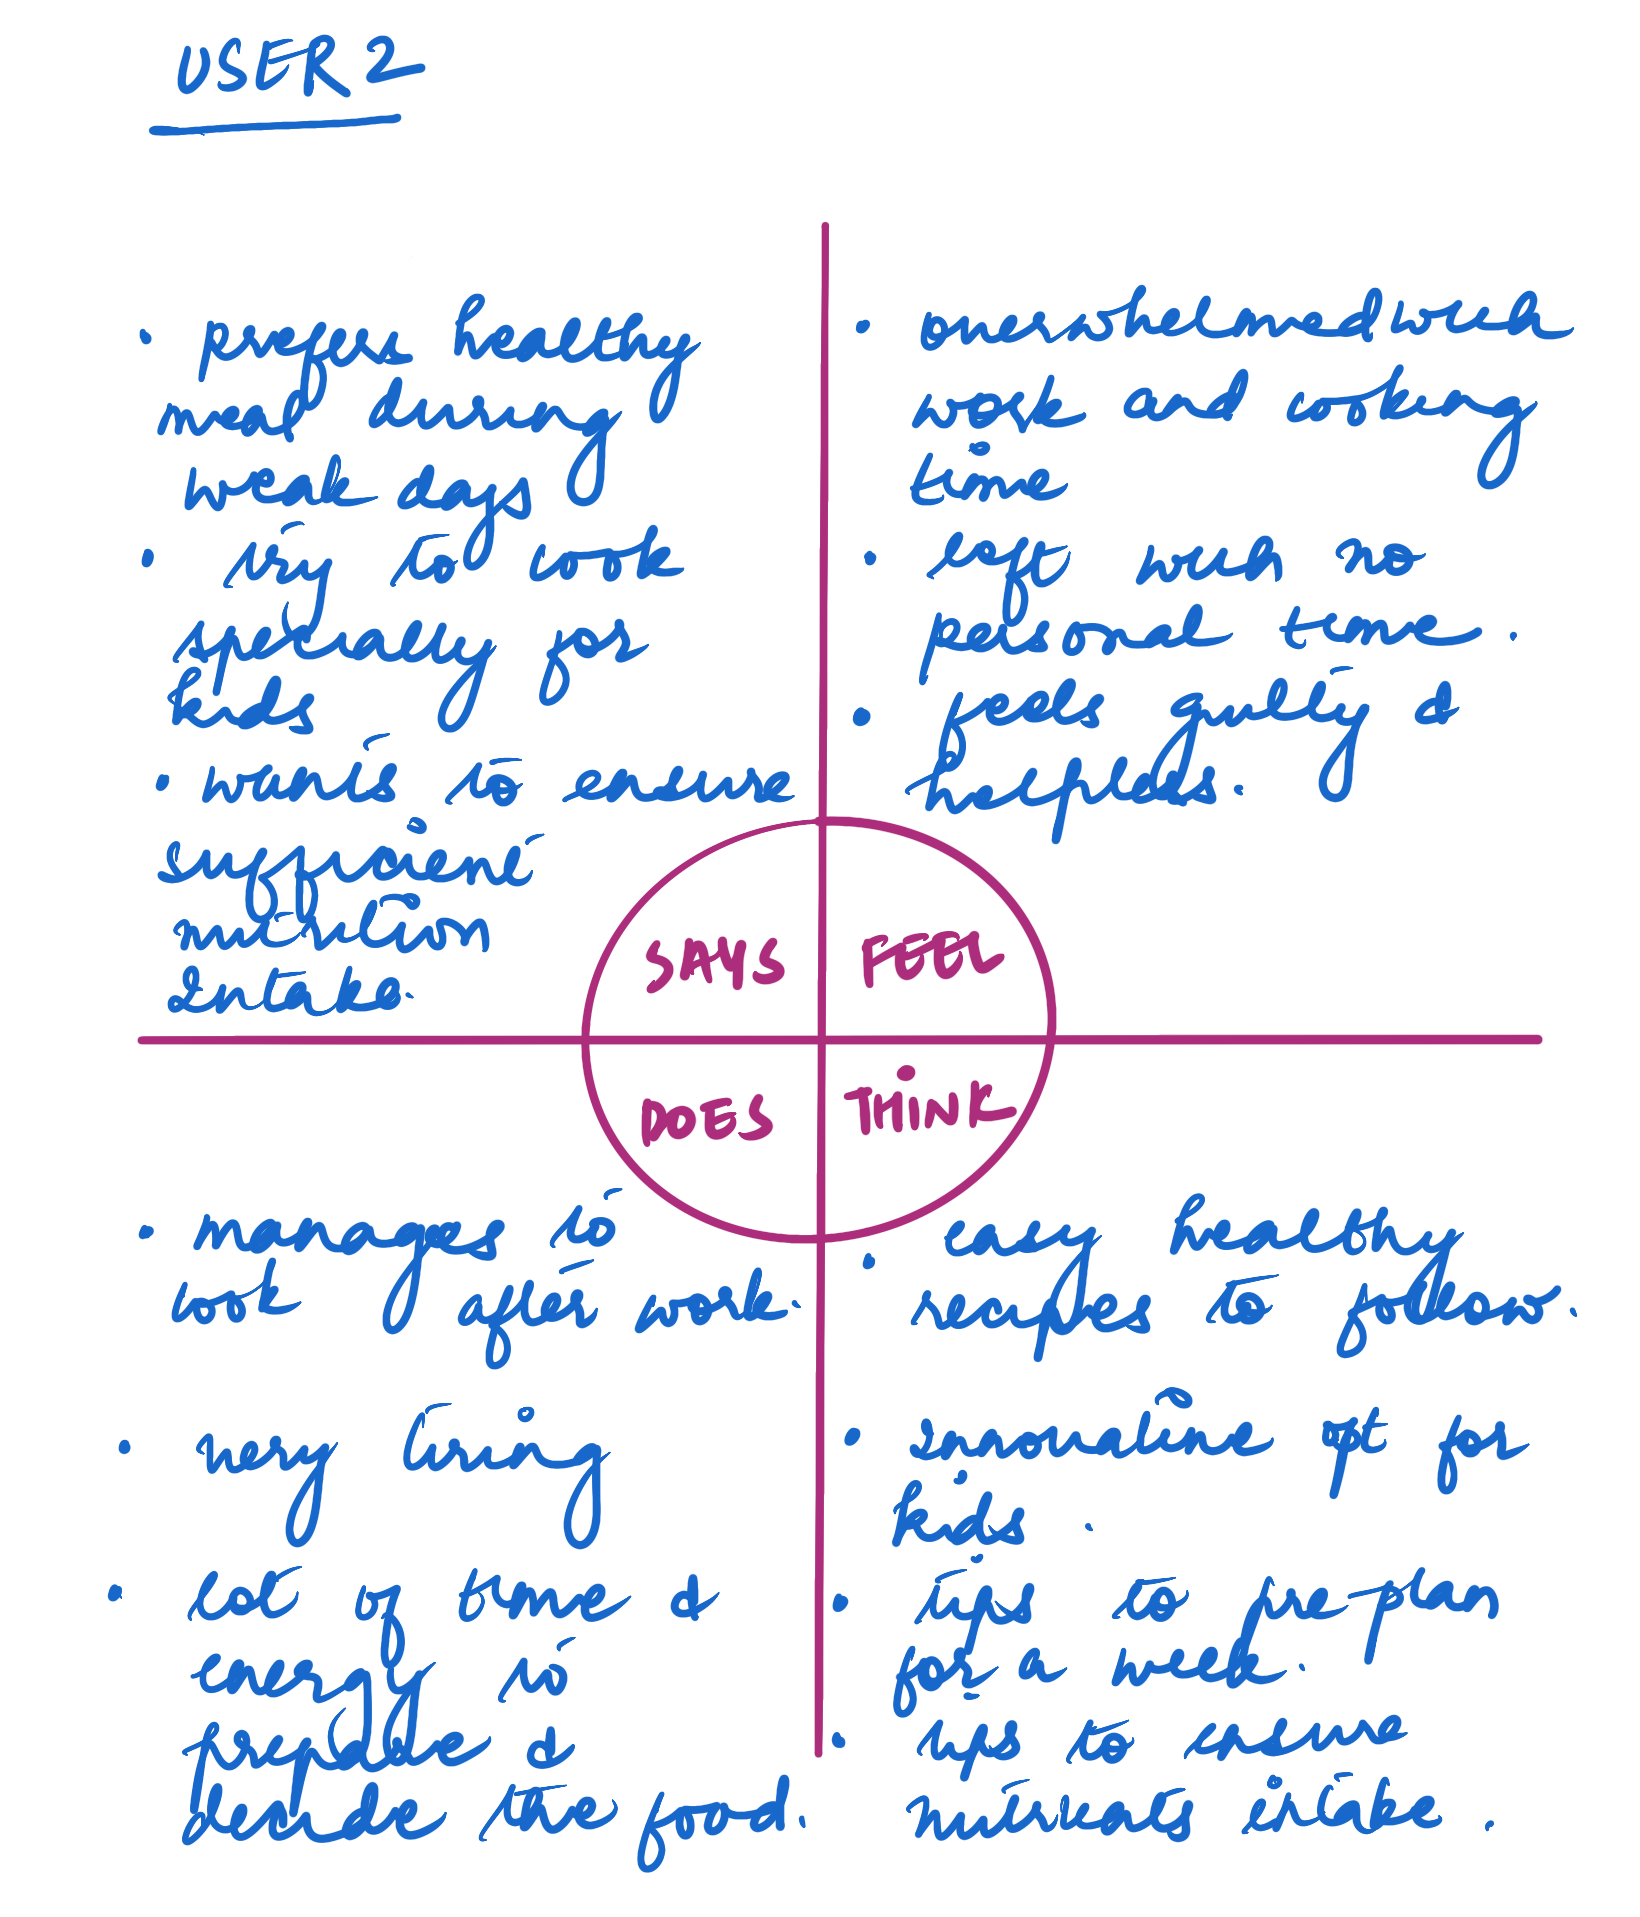 USER 2
• prefers healthy
meal during
weak days
• try to cook
specially for
kids
• wants to ensure
sufficient
nutrition
intake.
• overwhelmed with
work and cooking
time
• left with no
personal time.
• feels guilty &
helpless.
SAYS
FEEL
DOES
THINK
• manages to
cook after work.
• very tiring
• lot of time &
energy to
prepare &
decide the food.
• easy healthy
recipes to follow.
• innovative opt for
kids.
• tips to pre-plan
for a week.
• tips to ensure
intake.